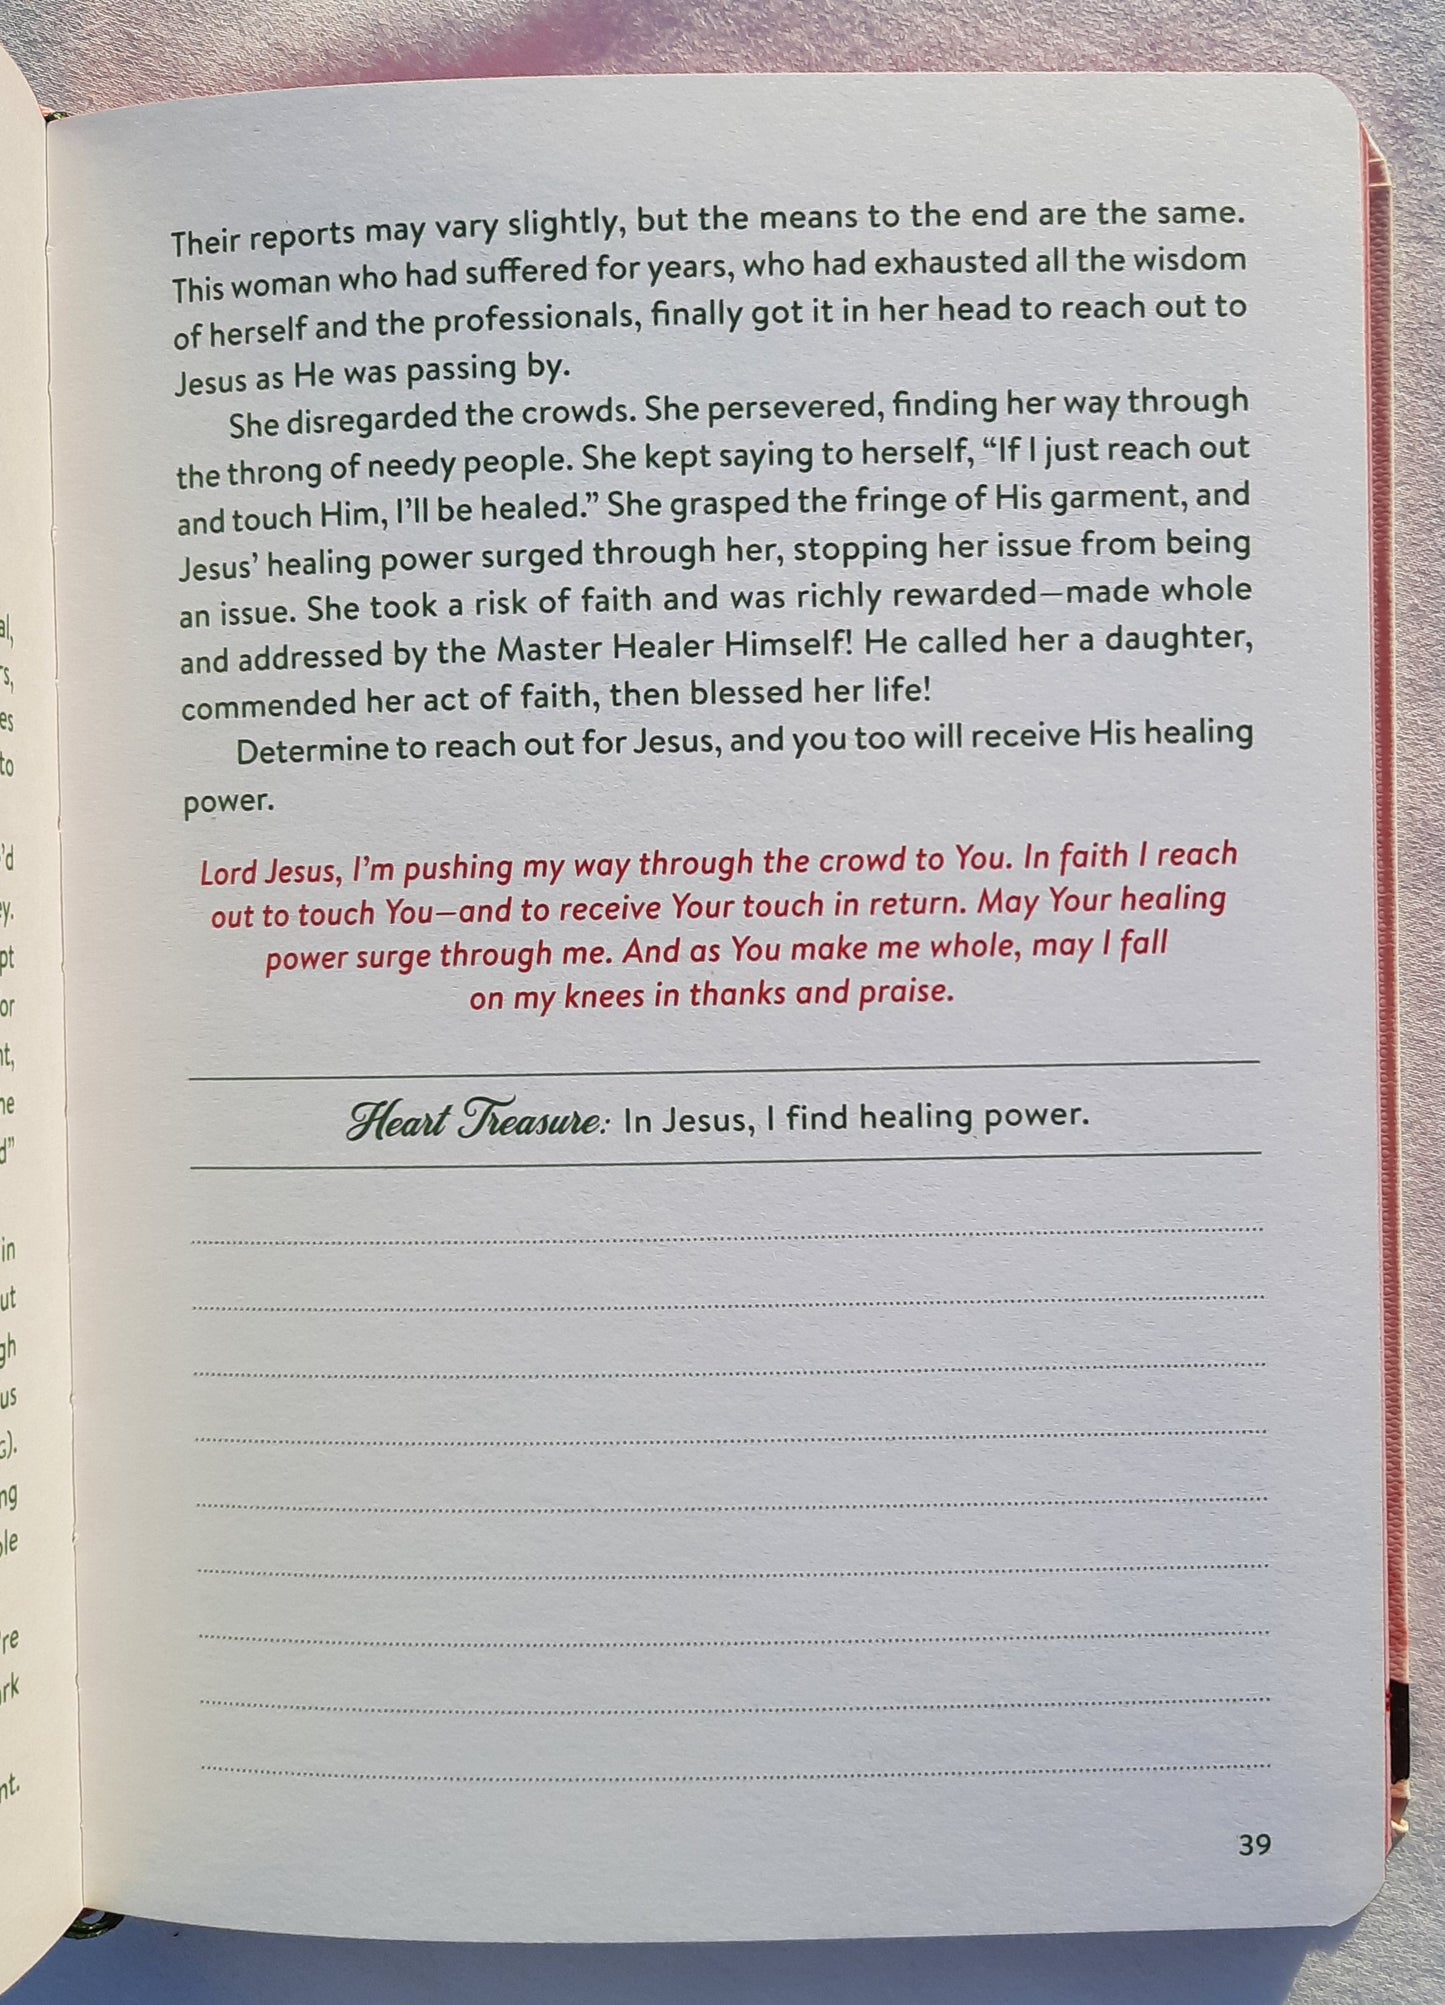 Their reports may vary slightly, but the means to the end are the same.
This woman who had suffered for years, who had exhausted all the wisdom
of herself and the professionals, finally got it in her head to reach out to
Jesus as He was passing by.
She disregarded the crowds. She persevered, finding her way through
the throng of needy people. She kept saying to herself, “If I just reach out
and touch Him, I’ll be healed.” She grasped the fringe of His garment, and
Jesus’ healing power surged through her, stopping her issue from being
an issue. She took a risk of faith and was richly rewarded—made whole
and addressed by the Master Healer Himself! He called her a daughter,
commended her act of faith, then blessed her life!
Determine to reach out for Jesus, and you too will receive His healing
power.
Lord Jesus, I’m pushing my way through the crowd to You. In faith I reach
out to touch You—and to receive Your touch in return. May Your healing
power surge through me. And as You make me whole, may I fall
on my knees in thanks and praise.
Heart Treasure: In Jesus, I find healing power.
39